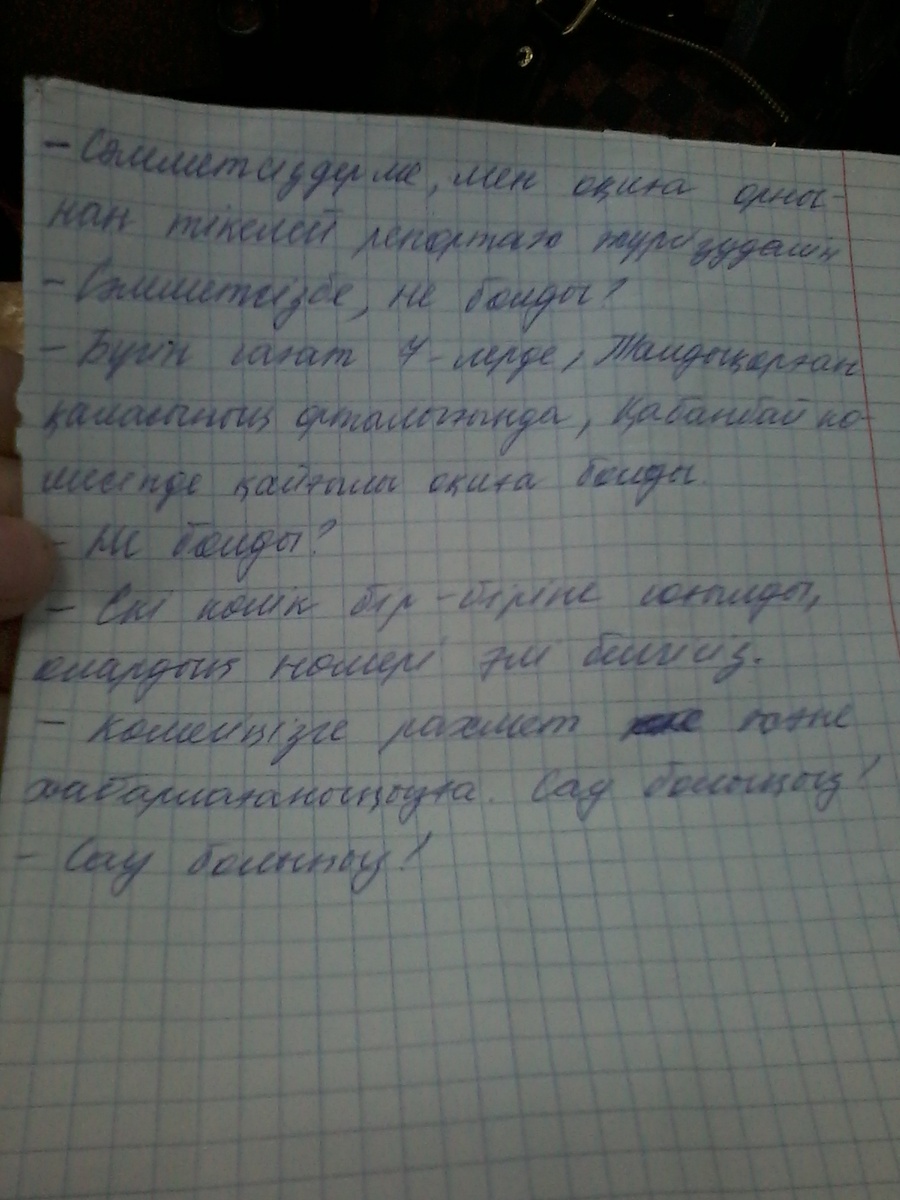 - Сәлеметсіздерме, мен оқиға орны-
нан тікелей репортаж жүргізудемін
- Сәлеметсізбе, не болды?
- Бүгін сағат 7-лерде, Талдықорған
қаласының орталығында, Қабанбай кө-
шесінде қайғылы оқиға болды.
- Не болды?
- Екі көлік бір-біріне соғылды,
олардың номері әлі белгісіз.
- Көмеңізге рахмет және
хабарлағаныңызға. Сау болыңыз!
- Сау болыңыз!